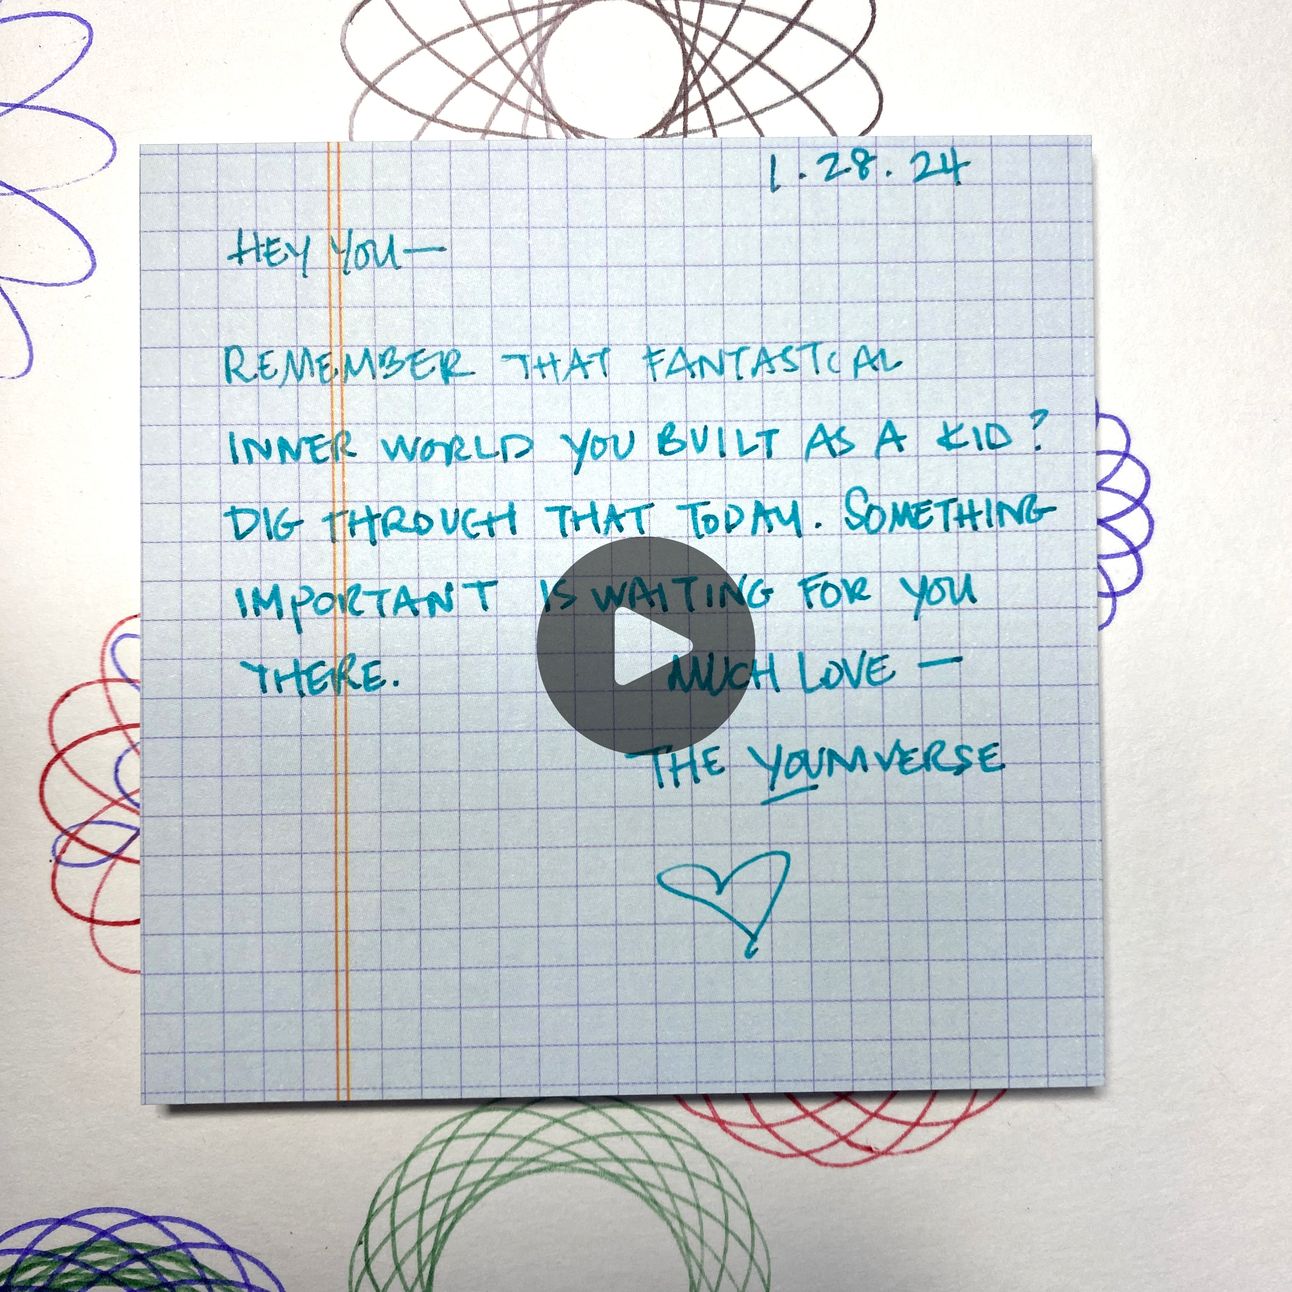 1.28.24
HEY YOU—
REMEMBER THAT FANTASTICAL
INNER WORLD YOU BUILT AS A KID?
DIG THROUGH THAT TODAY. SOMETHING
IMPORTANT IS WAITING FOR YOU
THERE. MUCH LOVE —
THE YOUNIVERSE